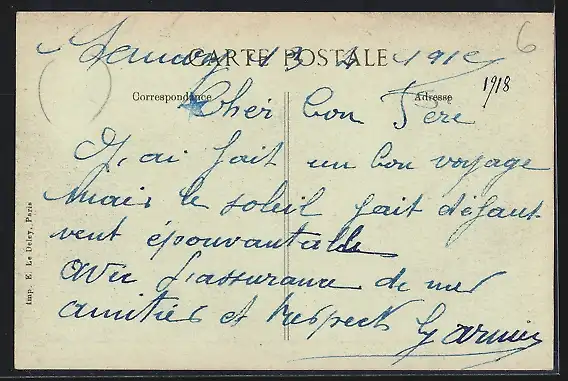 6
CARTE POSTALE
13 4 1918
Correspondance
Adresse
1918
Cher bon Père
J'ai fait un bon voyage
mais le soleil fait défaut
vent épouvantable
avec l'assurance de mes
amitiés et respects
Imp. E. Le Deley, Paris